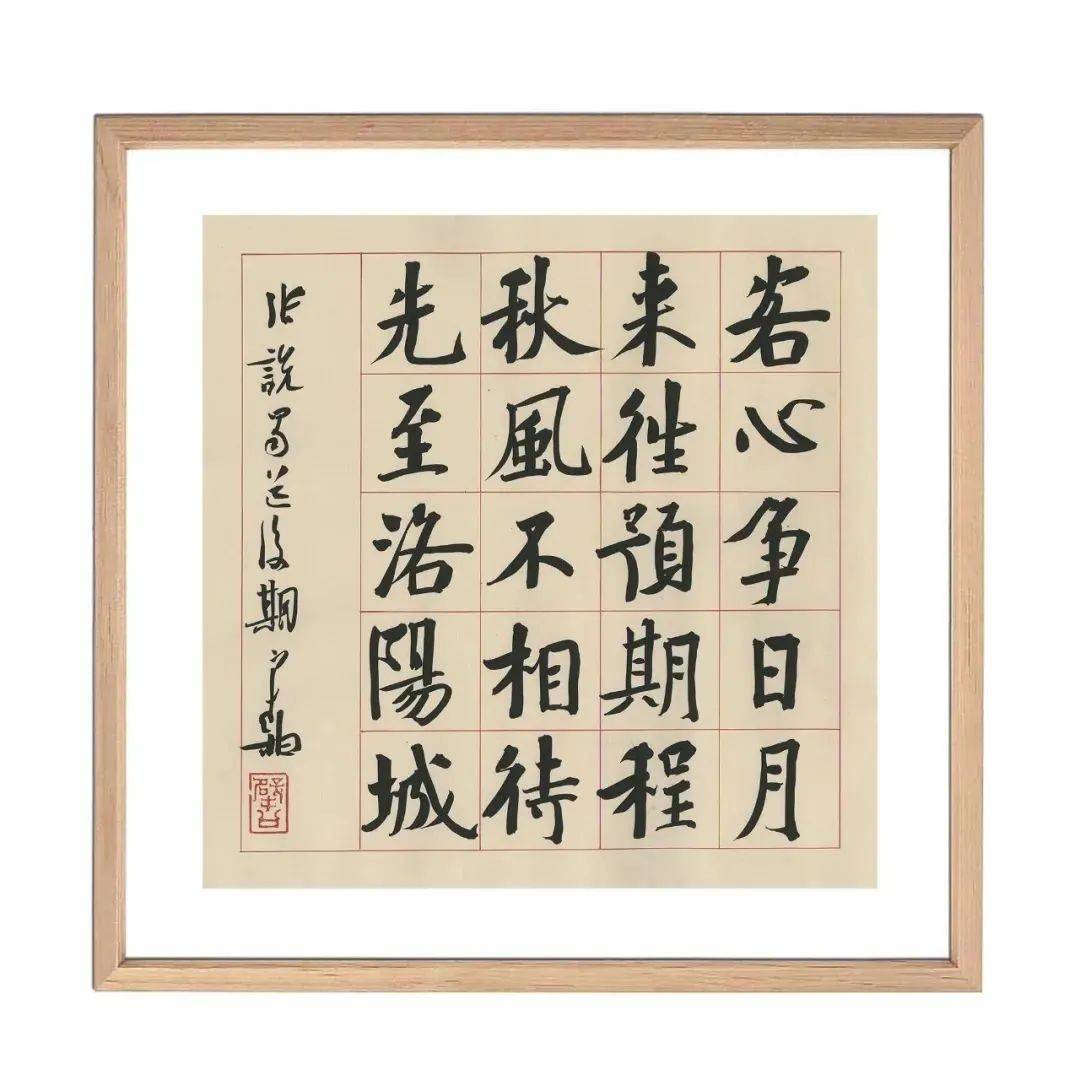 客心争日月
来徃預期程
秋風不相待
先至洛陽城
张說蜀道後期